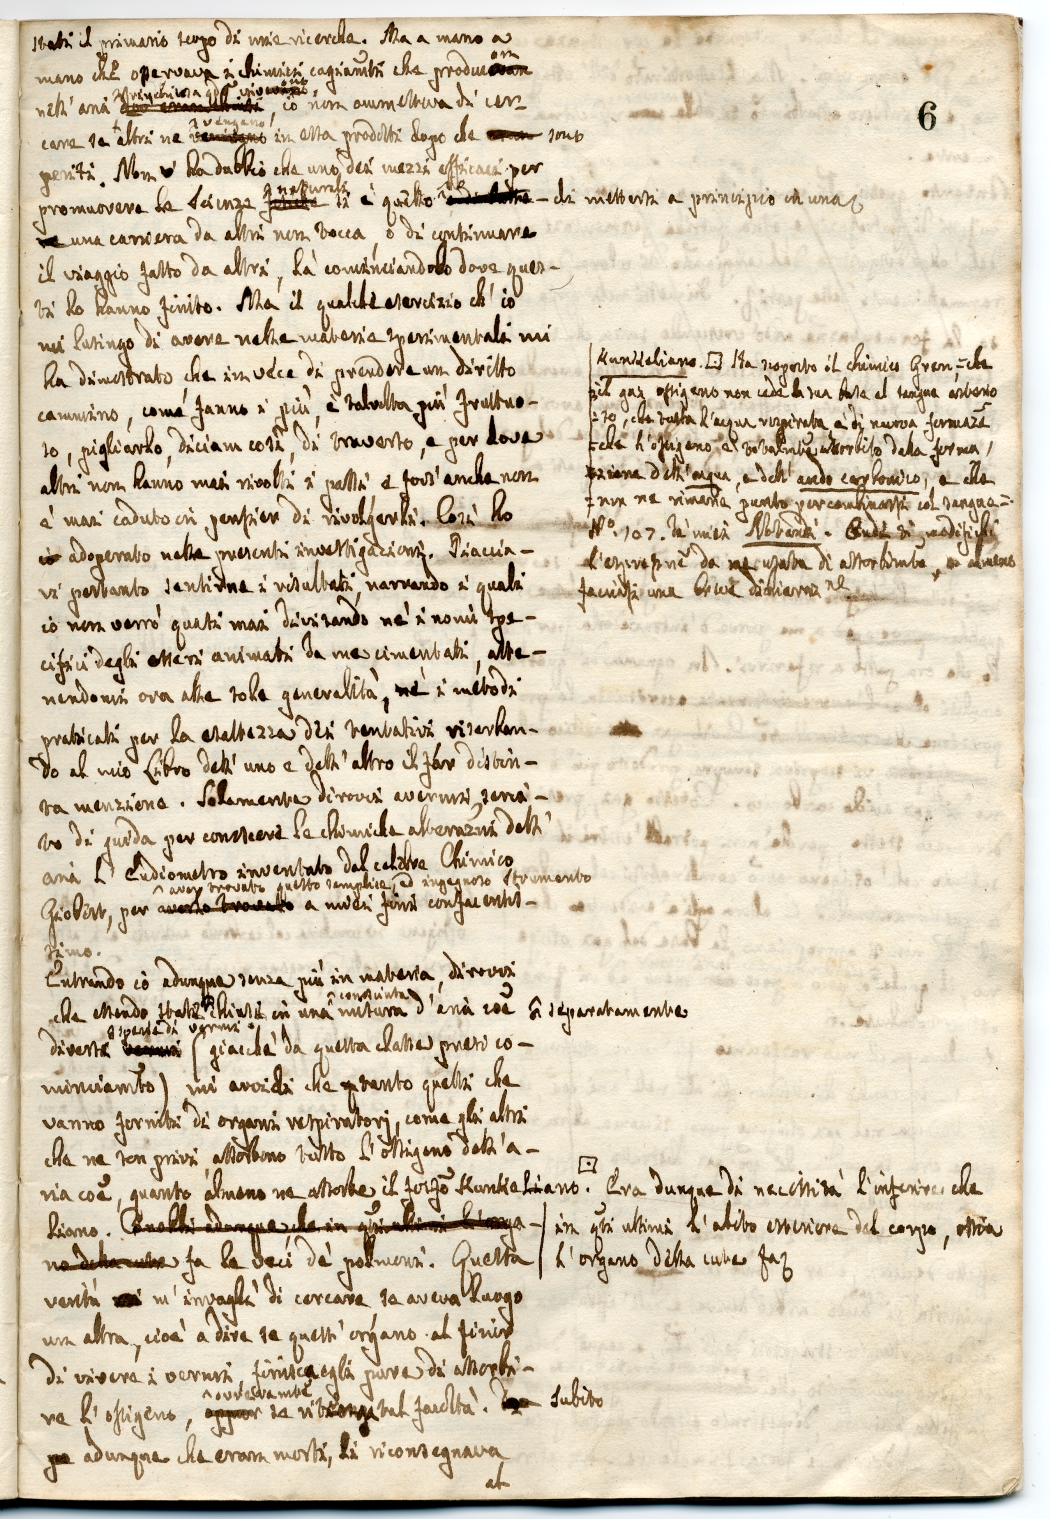 6
stati il primario scopo di mie ricerche. Ma a mano a
mano che operava i chimici cagiamti che producevan
nell' aria rinchiusa gli viventi, io non ommetteva di cer
care se altri ne vengano in essa prodotti dopo che sono
periti. Non v' ha dubbio che uno dei mezzi efficaci per
promuovere le scienze naturali si è quello di mettersi a principio in una
una carriera da altri non tocca, o di continuare
il viaggio fatto da altri, là cominciandolo dove ques-
ti lo hanno finito. Ma il qualche esercizio ch' io
mi lusingo di avere nelle materie sperimentali mi
ha dimostrato che in vece di prendere un diritto
cammino, come fanno i più, è talvolta più fruttuo-
so, pigliarlo, diciam così, di traverso, e per dove
altri non hanno mai rivolti i passi e fors' anche non
è mai caduto in pensier di rivolgerli. Così ho
adoperato nelle presenti investigazioni. Piaccia-
vi pertanto sentirne i risultati, narrando i quali
io non verrò quasi mai divisando nè i nomi spe-
cifici degli esseri animati da me cimentati, atte-
nendomi ora alle sole generalità, nè i metodi
praticati per la esattezza dei tentativi riserban-
do al mio Libro dell' uno e dell' altro il far distin-
ta menzione. Solamente dirovvi avermi servi-
to di guida per conoscere le chimiche alterazni dell'
aria l' Eudiometro inventato dal celebre Chimico
aver trovato questo semplice, ed ingegnoso strumento
Giobert, per a miei fini confacentis-
simo.
Entrando io adunque senza più in materia, dirovvi
che essendo stati chiusi in una conosciuta misura d' aria coe separatamente
diverse specie di vermi (giacchè da questa classe presi co-
minciamto) mi avvidi che tanto quelli che
vanno forniti di organi respiratorj, come gli altri
che ne son privi, assorbono tutto l' ossigeno dell' a-
ria coe, quanto almeno ne assorbe il fosfo Kunkeliano. Era dunque di necessità l' inferire, che
liano. Quelli adunque che in qsti ultimi l' orga- in qsti ultimi l' abito esteriore del corpo, ossia
no della cute fa le veci de' polmoni. Questa l' organo della cute fa
verità m' invogliò di cercare se aveva luogo
un altra, cioè a dire se quest' organo al finir
di vivere i vermi, finisca egli pure di assorbi-
re l' ossigeno, ovveramte se ritenga tal facoltà. Subito
adunque che eran morti, li riconsegnava
al
Kunkeliano. Ha scoperto il chimico Gren, =che
=il gaz ossigeno non cede la sua base al sangue arterio
=so, che tutta l'acqua respirata è di nuova formaze
=che l' ossigeno è totalmte assorbito dalla forma
=zione dell' acqua, e dell' acido carbonico, e che
= non ne rimane punto per combinarsi col sangue=.
N°. 107. de' miei . Qudi si modifichi
l' espressne da me usata di assorbimto, o almeno
facciasi una breve dichiaraz.ne